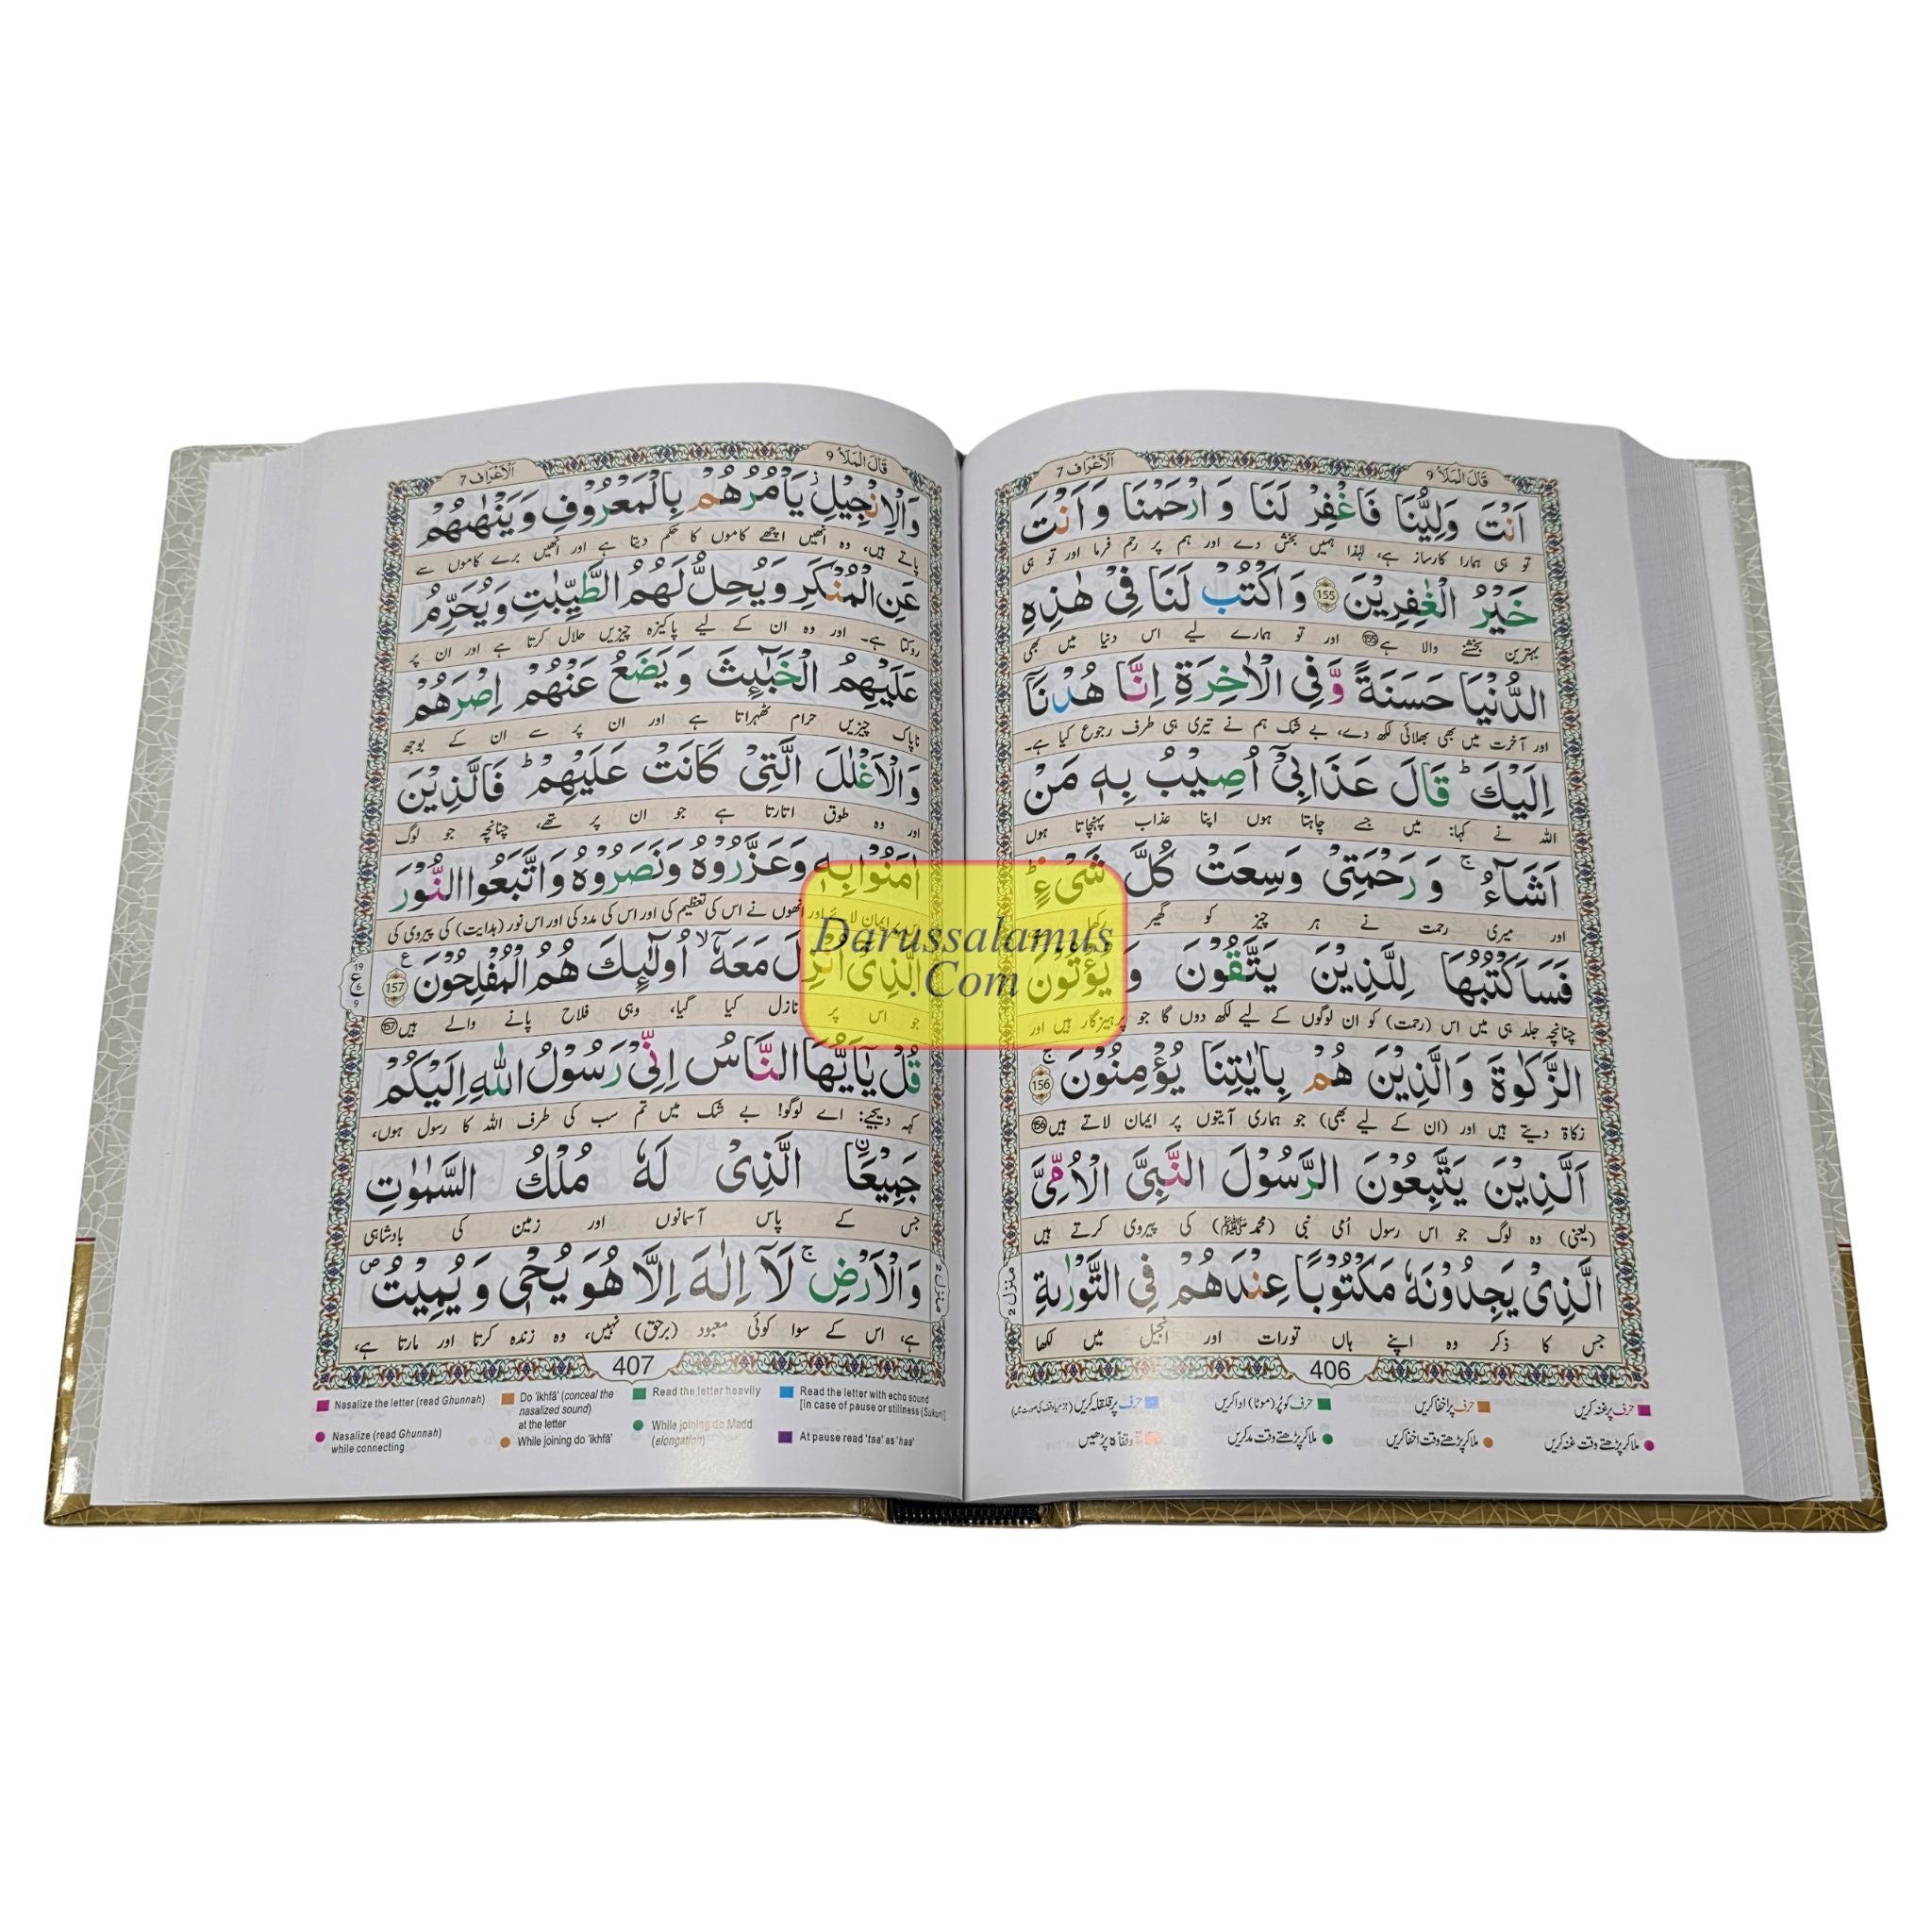 قَالَ الْمَلَاُ 9
اَلْاَعْرَاف 7
اَنْتَ وَلِيُّنَا فَاغْفِرْ لَنَا وَ ارْحَمْنَا وَ اَنْتَ
تو ہی ہمارا کارساز ہے، لہٰذا ہمیں بخش دے اور ہم پر رحم فرما اور تو ہی
خَيْرُ الْغٰفِرِيْنَ 155 وَ اكْتُبْ لَنَا فِيْ هٰذِهِ
بہترین بخشنے والا ہے 155 اور تو ہمارے لیے اس دنیا میں بھی
الدُّنْيَا حَسَنَةً وَّ فِي الْاٰخِرَةِ اِنَّا هُدْنَآ
اور آخرت میں بھی بھلائی لکھ دے، بے شک ہم نے تیری ہی طرف رجوع کیا ہے۔
اِلَيْكَ ؕ قَالَ عَذَابِيْۤ اُصِيْبُ بِهٖ مَنْ
اللہ نے کہا: میں جسے چاہتا ہوں اپنا عذاب پہنچاتا ہوں
اَشَآءُ ۚ وَ رَحْمَتِيْ وَسِعَتْ كُلَّ شَيْءٍ ؕ
اور میری رحمت نے ہر چیز کو گھیر رکھا
فَسَاَكْتُبُهَا لِلَّذِيْنَ يَتَّقُوْنَ وَ يُؤْتُوْنَ
چنانچہ جلد ہی میں اس (رحمت) کو ان لوگوں کے لیے لکھ دوں گا جو پرہیزگار ہیں اور
الزَّكٰوةَ وَ الَّذِيْنَ هُمْ بِاٰيٰتِنَا يُؤْمِنُوْنَ ۚ 156
زکاۃ دیتے ہیں اور (ان کے لیے بھی) جو ہماری آیتوں پر ایمان لاتے ہیں 156
اَلَّذِيْنَ يَتَّبِعُوْنَ الرَّسُوْلَ النَّبِيَّ الْاُمِّيَّ
(یعنی) وہ لوگ جو اس رسول اُمی نبی (محمد ﷺ) کی پیروی کرتے ہیں
الَّذِيْ يَجِدُوْنَهٗ مَكْتُوْبًا عِنْدَهُمْ فِي التَّوْرٰىةِ
جس کا ذکر وہ اپنے ہاں تورات اور انجیل میں لکھا
منزل 2
406
حرف پر غنہ کریں
حرف پر اخفا کریں
حرف کو پُر (موٹا) ادا کریں
حرف پر قلقلہ کریں
ملا کر پڑھتے وقت غنہ کریں
ملا کر پڑھتے وقت اخفا کریں
ملا کر پڑھتے وقت مد کریں
قَالَ الْمَلَاُ 9
اَلْاَعْرَاف 7
وَ الْاِنْجِيْلِ ۫ يَاْمُرُهُمْ بِالْمَعْرُوْفِ وَ يَنْهٰىهُمْ
پاتے ہیں، وہ انھیں اچھے کاموں کا حکم دیتا ہے اور انھیں برے کاموں سے
عَنِ الْمُنْكَرِ وَ يُحِلُّ لَهُمُ الطَّيِّبٰتِ وَ يُحَرِّمُ
روکتا ہے۔ اور وہ ان کے لیے پاکیزہ چیزیں حلال کرتا ہے اور ان پر
عَلَيْهِمُ الْخَبٰٓئِثَ وَ يَضَعُ عَنْهُمْ اِصْرَهُمْ
ناپاک چیزیں حرام ٹھہراتا ہے اور ان پر سے ان کے بوجھ
وَ الْاَغْلٰلَ الَّتِيْ كَانَتْ عَلَيْهِمْ ؕ فَالَّذِيْنَ
اور وہ طوق اتارتا ہے جو ان پر تھے، چنانچہ جو لوگ
اٰمَنُوْا بِهٖ وَ عَزَّرُوْهُ وَ نَصَرُوْهُ وَ اتَّبَعُوا النُّوْرَ
ایمان لائے اور انھوں نے اس کی تعظیم کی اور اس کی مدد کی اور اس نور (ہدایت) کی پیروی کی
الَّذِيْۤ اُنْزِلَ مَعَهٗۤ ۙ اُولٰٓئِكَ هُمُ الْمُفْلِحُوْنَ 157
جو اس پر نازل کیا گیا، وہی فلاح پانے والے ہیں 157
19
ع
6
9
قُلْ يٰۤاَيُّهَا النَّاسُ اِنِّيْ رَسُوْلُ اللّٰهِ اِلَيْكُمْ
کہہ دیجیے: اے لوگو! بے شک میں تم سب کی طرف اللہ کا رسول ہوں،
جَمِيْعَا ِ۟الَّذِيْ لَهٗ مُلْكُ السَّمٰوٰتِ
جس کے پاس آسمانوں اور زمین کی بادشاہی
وَ الْاَرْضِ ۚ لَاۤ اِلٰهَ اِلَّا هُوَ يُحْيٖ وَ يُمِيْتُ ۪
ہے، اس کے سوا کوئی معبود (برحق) نہیں، وہ زندہ کرتا اور مارتا ہے،
منزل 2
407
Nasalize the letter (read Ghunnah)
Do 'ikhfā' (conceal the nasalized sound) at the letter
Read the letter heavily
Read the letter with echo sound [in case of pause or stillness (Sukun)]
Nasalize (read Ghunnah) while connecting
While joining do 'ikhfā'
While joining do Madd (elongation)
At pause read 'taa' as 'haa'
Darussalamus
.Com